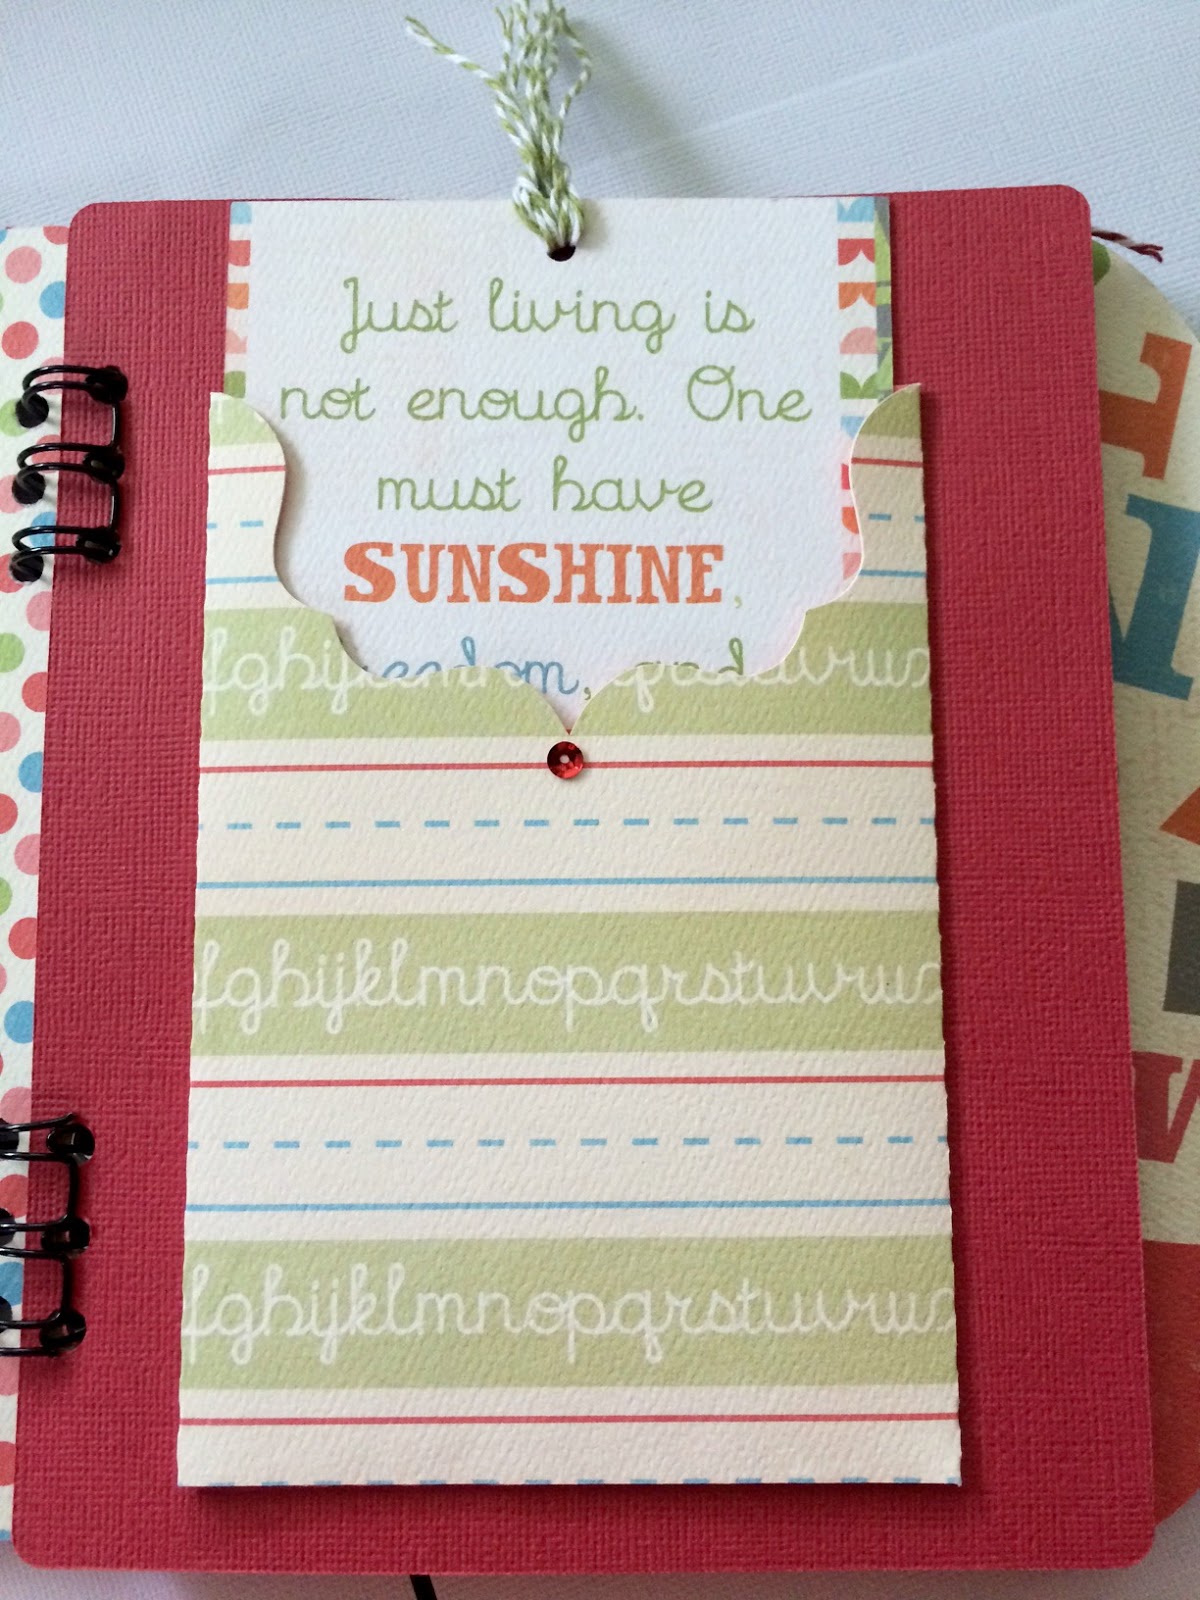 Just living is
not enough. One
must have
SUNSHINE,
fghijklmnopqrstuvw
fghijklmnopqrstuvw